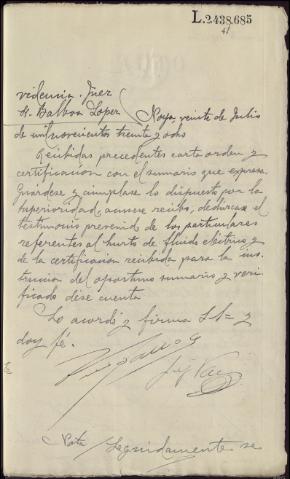 L.2438.685
41
videncia. Juez
R. Balboa Lopez
Noya, veinte de Julio
de mil novecientos treinta y ocho
Recibidas precedentes carta orden y
certificación con el sumario que expresa
Guárdese y cúmplase lo dispuesto por la
Superioridad, acusese recibo, dedúzcase el
testimonio prevenido de los particulares
referentes al hurto de fluido eléctrico, y
de la certificación recibida para la ins-
trucción del oportuno sumario y veri-
ficado dése cuenta
Lo acordó y firma S.Sª y
doy fé.
Nota Seguidamente se